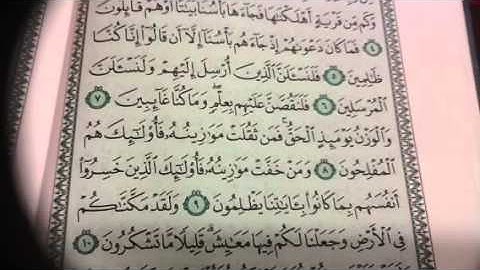 وَكَم مِّن قَرْيَةٍ أَهْلَكْنَٰهَا فَجَآءَهَا بَأْسُنَا بَيَٰتًا أَوْ هُمْ قَآئِلُونَ
﴿٤﴾ فَمَا كَانَ دَعْوَىٰهُمْ إِذْ جَآءَهُم بَأْسُنَآ إِلَّآ أَن قَالُوٓا۟ إِنَّا كُنَّا
ظَٰلِمِينَ ﴿٥﴾ فَلَنَسْـَٔلَنَّ ٱلَّذِينَ أُرْسِلَ إِلَيْهِمْ وَلَنَسْـَٔلَنَّ
ٱلْمُرْسَلِينَ ﴿٦﴾ فَلَنَقُصَّنَّ عَلَيْهِم بِعِلْمٍ ۖ وَمَا كُنَّا غَآئِبِينَ ﴿٧﴾
وَٱلْوَزْنُ يَوْمَئِذٍ ٱلْحَقُّ ۚ فَمَن ثَقُلَتْ مَوَٰزِينُهُۥ فَأُو۟لَٰٓئِكَ هُمُ
ٱلْمُفْلِحُونَ ﴿٨﴾ وَمَنْ خَفَّتْ مَوَٰزِينُهُۥ فَأُو۟لَٰٓئِكَ ٱلَّذِينَ خَسِرُوٓا۟
أَنفُسَهُم بِمَا كَانُوا۟ بِـَٔايَٰتِنَا يَظْلِمُونَ ﴿٩﴾ وَلَقَدْ مَكَّنَّٰكُمْ
فِى ٱلْأَرْضِ وَجَعَلْنَا لَكُمْ فِيهَا مَعَٰيِشَ ۗ قَلِيلًا مَّا تَشْكُرُونَ ﴿١٠﴾